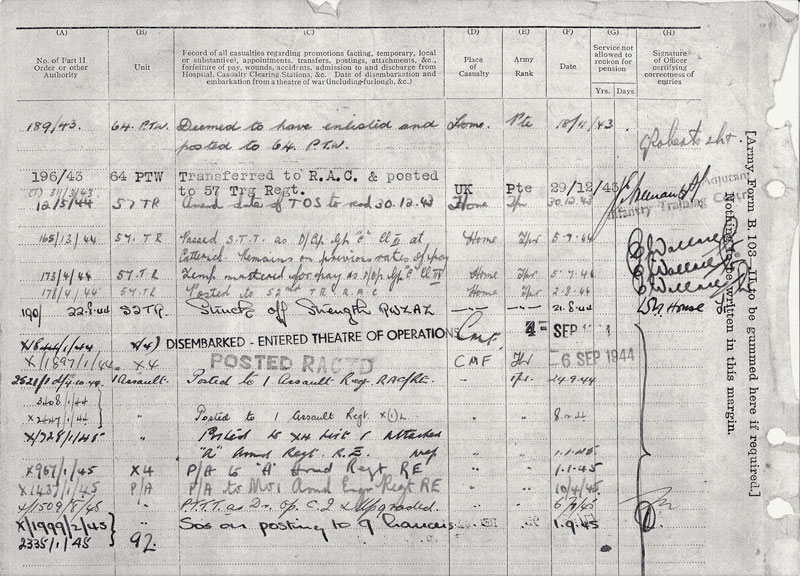 (A) (B) (C) (D) (E) (F) (G) (H)
No. of Part II Order or other Authority
Unit
Record of all casualties regarding promotions (acting, temporary, local or substantive), appointments, transfers, postings, attachments, &c., forfeiture of pay, wounds, accidents, admission to and discharge from Hospital, Casualty Clearing-Stations, &c. Date of disembarkation and embarkation from a theatre of war (including furlough, &c.)
Place of Casualty
Army Rank
Date
Service not allowed to reckon for pension
Yrs. Days
Signature of Officer certifying correctness of entries
189/43. 64. P.T.W. Deemed to have enlisted and Home. Pte 18/11/43
posted to 64. P.T.W.
196/43 64 PTW Transferred to R.A.C. & posted
to 57 Trg Regt. UK Pte 29/12/43
12/5/44 57 TR Amend date of TOS to read 30.12.43 Home Tpr 30.12.43
Infantry Training
165/13/44 57. TR Passed S.T.T. as Home Tpr 5.7.44
Catterick. Remains on previous rates of pay Wallace
173/4/44 57. TR for pay as Home Tpr 5.7.44 Wallace
178/4/44 57 TR Posted to 52nd TR R.A.C Home Tpr 2.8.44 Wallace
190/ 22.8.44 52TR. Struck off Strength 21.8.44 House
X4) DISEMBARKED - ENTERED THEATRE OF OPERATIONS CMF 4- SEP
X/1897/1/44 X4 POSTED RACTD CMF Tpr -6 SEP 1944
1 Assault. Posted to 1 Assault Reg. RAC/RE. 24.9.44
2408/1/44
X2447/1/44 " Posted to 1 Assault Regt.
X/728/1/45 " Posted to X4 List & attached
"A" Armd Regt. R.E. " " 1.1.45
X967/1/45 X4 P/A to "A" Armd Regt RE " " 1.1.45
X1437/1/45 P/A P/A to No 1 Armd Engr Regt RE " " 10/4/45
X/1509/5/45 P.T.T. as Dr. Op. C. & Upgraded. " "
X/1999/2/45 " Sos on posting to 9 Lancers 1.9.45
2335/1/45 92.
[Army Form B.103—II. to be gummed here if required.]
Nothing to be written in this margin.